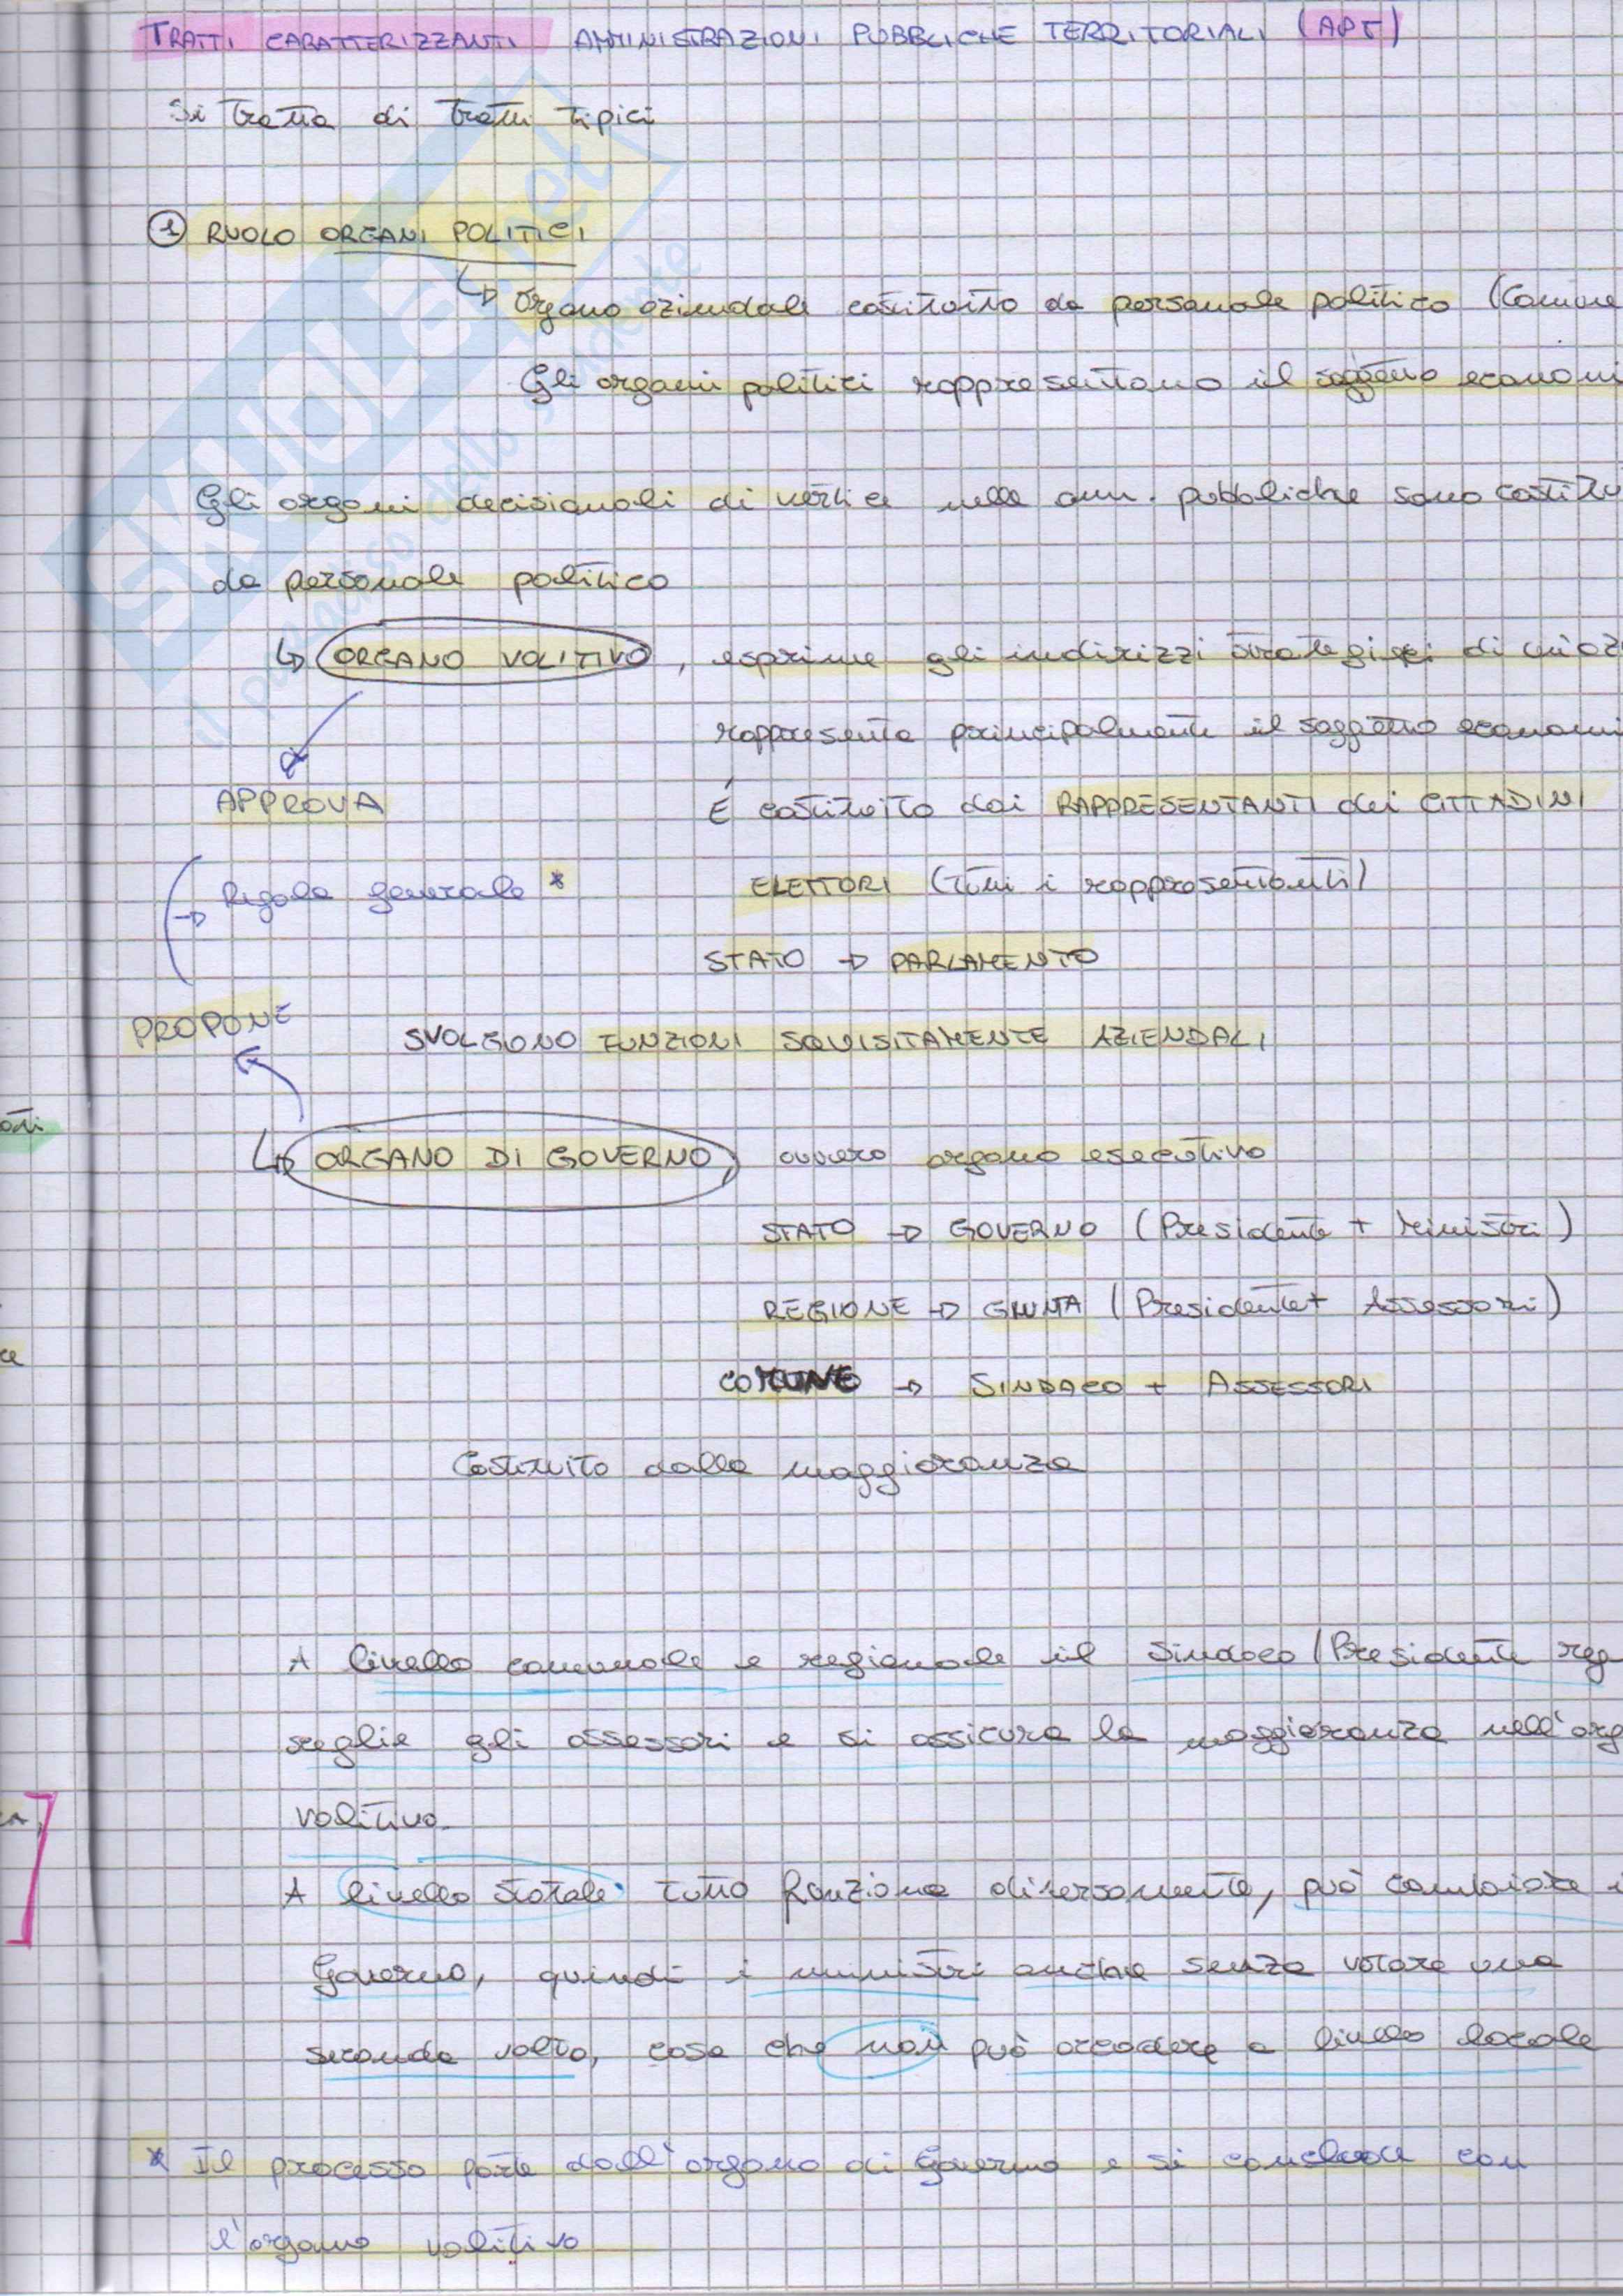 TRATTI CARATTERIZZANTI AMMINISTRAZIONI PUBBLICHE TERRITORIALI (APT)
Si tratta di tratti tipici
1 RUOLO ORGANI POLITICI
↳ Organo aziendale costituito da personale politico (Comune
Gli organi politici rappresentano il soggetto econom
Gli organi decisionali di vertice nelle amm. pubbliche sono costitu
da personale politico
↳ ORGANO VOLITIVO, esprime gli indirizzi strategici di
rappresenta principalmente il soggetto econom
APPROVA
É costituito dai RAPPRESENTANTI dei CITTADINI
→ Regola generale *
ELETTORI (tutti i rappresentanti)
STATO → PARLAMENTO
PROPONE
SVOLGONO FUNZIONI SQUISITAMENTE AZIENDALI
↳ ORGANO DI GOVERNO, ovvero organo esecutivo
STATO → GOVERNO (Presidente + Ministri)
REGIONE → GIUNTA (Presidente + Assessori)
COMUNE → SINDACO + ASSESSORI
Costituito dalla maggioranza
A livello comunale e regionale il Sindaco (Presidente reg
sceglie gli assessori e si assicura la maggioranza nell'org
volitivo.
A livello statale tutto funziona diversamente, può cambiare i
Governo, quindi i ministri anche senza votare una
seconda volta, cosa che non può accadere a livello locale
* Il processo parte dall'organo di Governo e si conclude con
l'organo volitivo
SKUOLA.net
il paradiso dello studente